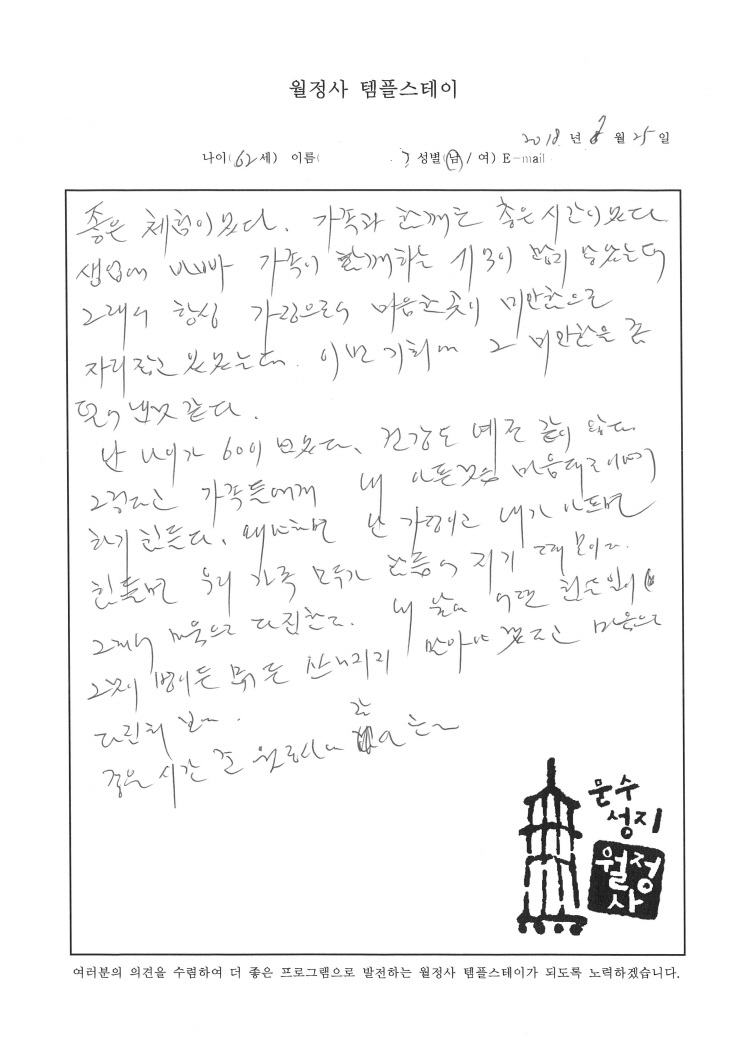 월정사 템플스테이
2018 년 8 월 25 일
나이(62세) 이름( ) 성별(남 / 여) E-mail
좋은 체험이였다. 가족과 함께한 좋은 시간이였다.
생업에 바빠 가족이 함께하는 시간이 많지 않았는데
그래서 항상 가장으로서 마음 한 곳이 미안함으로
자리 잡고 있었는데. 이번 기회에 그 미안함을 좀
덜어 낸것 같다.
난 나이가 60이 넘었다. 건강도 예전 같지 않다.
그렇다고 가족들에게 내 아픈 마음대로
하기 힘들다. 왜냐하면 난 가장이고 내가 아프면
힘들면 우리 가족 모두가 힘들어 지기 때문이다.
그래서 마음으로 다짐한다. 내 몸에 어떤
그것이 병이든 뭐든 마음으로
좋은 시간 준 월정사에 감
문수
성지
월정
사
여러분의 의견을 수렴하여 더 좋은 프로그램으로 발전하는 월정사 템플스테이가 되도록 노력하겠습니다.